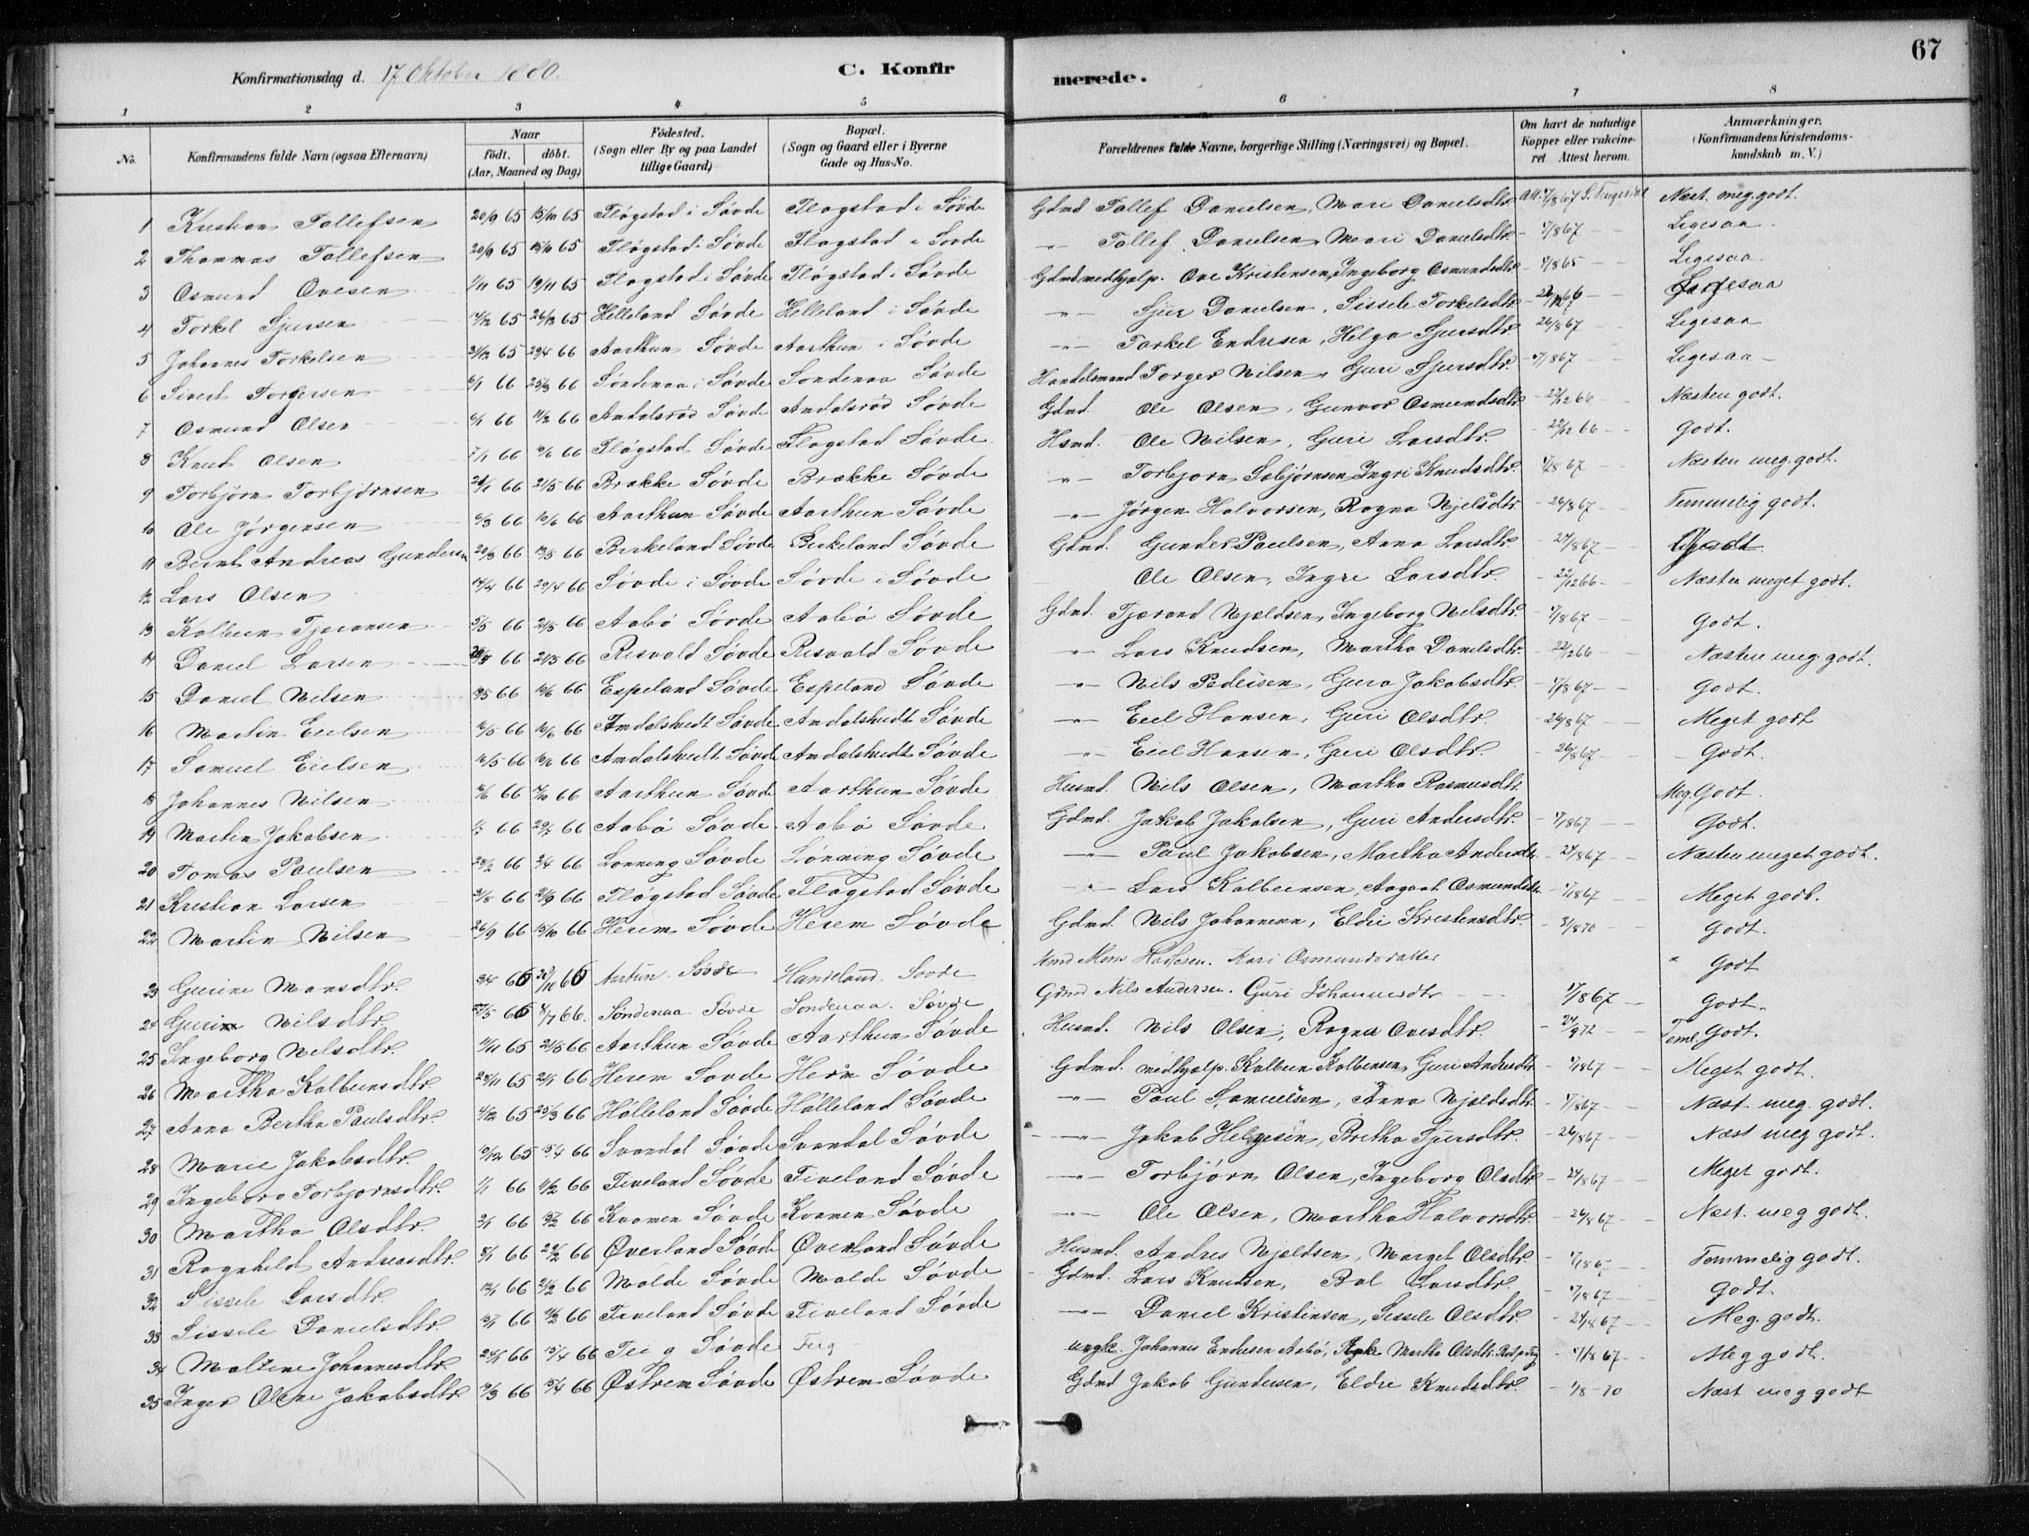 67
Konfirmationsdag d. 17. Oktober 1880.
C. Konfirmerede.
1 2 3 4 5 6 7 8
No. Konfirmandens fulde Navn (ogsaa Efternavn) Naar födt. döbt. (Aar, Maaned og Dag) Födested. (Sogn eller By og paa Landet tillige Gaard) Bopæl. (Sogn og Gaard eller i Byerne Gade og Hus-No. Forældrenes fulde Navne, borgerlige Stilling (Næringsvei) og Bopæl. Om havt de naturlige Kopper eller vakcineret. Attest herom. Anmærkninger. (Konfirmandens Kristendomskundskab m. V.)
1 Kristian Tollefsen 20/9 65 15/10 65 Fløgstad i Søvde Fløgstad i Søvde Gdmd Tollef Danielsen, Mari Danielsdtr. Att. 17/8 67 Næst. meg. godt.
2 Thomas Tollefsen 20/9 65 15/10 65 Fløgstad i Søvde Fløgstad i Søvde -"- Tollef Danielsen, Mari Danielsdtr. - 17/8 67 Ligesaa
3 Osmund Ovesen 1/11 65 19/11 65 Fløgstad i Søvde Fløgstad i Søvde Gdmd.medhjælp. Ove Kristensen, Ingeborg Osmundsdtr. Ligesaa
4 Torkel Sjursen 65 26/12 65 Helleland Søvde Helleland i Søvde -"- Sjur Danielsen, Sissele Torkelsdtr. Ligesaa
5 Johannes Torkelsen 31/12 65 29/4 66 Aarthun Søvde Aarthun i Søvde -"- Torkel Endresen, Helga Sjursdtr. 26/8 67 Ligesaa
6 Sivert Torgersen 6/1 66 25/3 66 Søndenaa i Søvde Søndenaa Søvde Handelsmand Torger Nilsen, Guri Sjursdtr. - 17/8 67 Ligesaa
7 Osmund Olsen 6/1 66 11/2 66 Amdalsrød Søvde Amdalsrød Søvde Gdmd. Ole Olsen, Gunvor Osmundsdtr. 22/12 66 Næsten godt.
8 Knut Olsen 7/1 66 66 Fløgstad Søvde Fløgstad Søvde Hsmd. Ole Nilsen, Guri Larsdtr. 22/12 66 Godt.
9 Torbjørn Torbjørnsen 66 21/5 66 Brække Søvde Brække Søvde -"- Torbjørn Sebjørnsen, Ingri Knudsdtr. 17/8 67 Næsten meg. godt.
10 Ole Jørgensen 6/3 66 10/6 66 Aarthun Søvde Aarthun Søvde -"- Jørgen Halvorsen, Ragna Njelsdtr. - 26/8 67 Temmelig godt.
11 Bernt Andreas Gundersen 20/3 66 13/5 66 Birkeland Søvde Birkeland Søvde Gdmd. Gunder Paulsen, Anna Larsdtr. 27/8 67 Godt
12 Lars Olsen 14/4 66 29/4 66 Søvde i Søvde Søvde i Søvde Ole Olsen, Ingri Larsdtr. 22/12 66 Næsten meget godt.
13 Kolbein Tjeransen 5/5 66 21/5 66 Aabø Søvde Aabø Søvde Gdmd. Tjerand Njældsen, Ingeborg Nilsdtr. - 17/8 67 Godt.
14 Daniel Larsen 66 21/5 66 Risvold Søvde Risvold Søvde -"- Lars Knudsen, Martha Danielsdtr. 22/12 66 Næsten meg. godt.
15 Daniel Nilsen 66 10/6 66 Espeland Søvde Espeland Søvde -"- Nils Pedersen, Guro Jakobsdtr. - 17/8 67 Godt.
16 Martin Eielsen 16/5 66 10/6 66 Amdalstvedt Søvde Amdalstvedt Søvde -"- Eiel Hansen, Guri Olsdtr. 26/8 67 Meget godt
17 Samuel Eielsen 16/5 66 10/6 66 Amdalstvedt Søvde Amdalstvedt Søvde -"- Eiel Hansen, Guri Olsdtr. 26/8 67 Godt.
18 Johannes Nilsen 66 66 Aarthun Søvde Aarthun Søvde Husmd. Nils Olsen, Martha Rasmusdtr. Meg. Godt
19 Martin Jakobsen 66 29/7 66 Aabø Søvde Aabø Søvde Gdmd. Jakob Jakobsen, Guri Andersdtr. - 17/8 67 Godt.
20 Tomas Paulsen 66 2/4 66 Lønning Søvde Lønning Søvde -"- Paul Jakobsen, Martha Andersdtr. - 27/8 67 Næsten meget godt.
21 Kristian Larsen 66 66 Fløgstad Søvde Fløgstad Søvde -"- Lars Kolbeinsen, Aagaat Osmundsdtr. - 17/8 67 Meget godt.
22 Martin Nilsen 26/9 66 15/10 66 Herem Søvde Herem Søvde Gdmd. Nils Johannesen, Eldri Kristensdtr. Godt.
23 Gurine Monsdtr. 3/4 66 66 Aartun. Søvde Handeland. Søvde Kari Osmundsdatter " Godt
24 Gurine Nilsdtr. 66 8/7 66. Søndenaa. Søvde Søndenaa. Søvde Gdmd Nils Andersen. Guri Johannesdtr. 17/8 67 Godt.
25 Ingeborg Nilsdtr. 65 21/5 66 Aarthun Søvde Aarthun Søvde Husmd. Nils Olsen, Ragna Ovesdtr. Teml. Godt.
26 Martha Kolbeinsdtr. 65 21/1 66 Herem Søvde Herem Søvde Gdmd. medhjælp. Kolbein Kolbensen, Guri Andersdtr. - 17/8 67 Meget godt.
27 Anna Bertha Paulsdtr. 4/12 65 25/3 66 Hålleland Søvde Hålleland Søvde -"- Paul Samuelsen, Anna Njeldsdtr. - 17/8 67 Næst meg. godt.
28 Marie Jakobsdtr. 10/12 65 66 Svandal Søvde Svandal Søvde -"- Jakob Helgesen, Britha Sjursdtr. - 26/8 67 Næst meg godt.
29 Ingeborg Torbjørnsdtr. 1/1 66 66 Tiveland Søvde Tiveland Søvde -"- Torbjørn Olsen, Ingeborg Olsdtr. - 27/8 67 Meget godt.
30 Martha Olsdtr. 2/1 66 66 Kvamen Søvde Kvamen Søvde -"- Ole Olsen, Martha Halvorsdtr. - 26/8 67 Næst. meg godt.
31 Ragnhild Andreasdtr. 8/1 66 66 Øverland Søvde Øverland Søvde Husmd. Andres Njældsen, Marget Olsdtr. Temmelig godt.
32 Sissele Larsdtr. 66 66 Molde Søvde Molde Søvde Gdmd. Lars Knudsen, Bol Larsdtr. - 17/8 67 Godt.
33 Sissele Danielsdtr. 66 66 Tiveland Søvde Tiveland Søvde -"- Daniel Kristensen, Sissele Olsdtr. - 27/8 67 Meg. godt.
34 Maltine Johannesdtr. 66 66 Teig Søvde Teig ungk. Johannes Endresen Aabø, Pige Martha Olsdtr. - 17/8 67 Meg godt.
35 Inger Oline Jakobsdtr. 66 66 Østrem Søvde Østrem Søvde Gdmd Jakob Gundersen, Eldri Knudsdtr. Næst meg godt